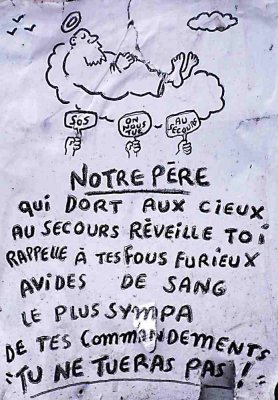 SOS
ON NOUS TUE
AU SECOURS
NOTRE PÈRE
QUI DORT AUX CIEUX
AU SECOURS RÉVEILLE TOI
RAPPELLE À TES FOUS FURIEUX
AVIDES DE SANG
LE PLUS SYMPA
DE TES COMMANDEMENTS
"TU NE TUERAS PAS"!